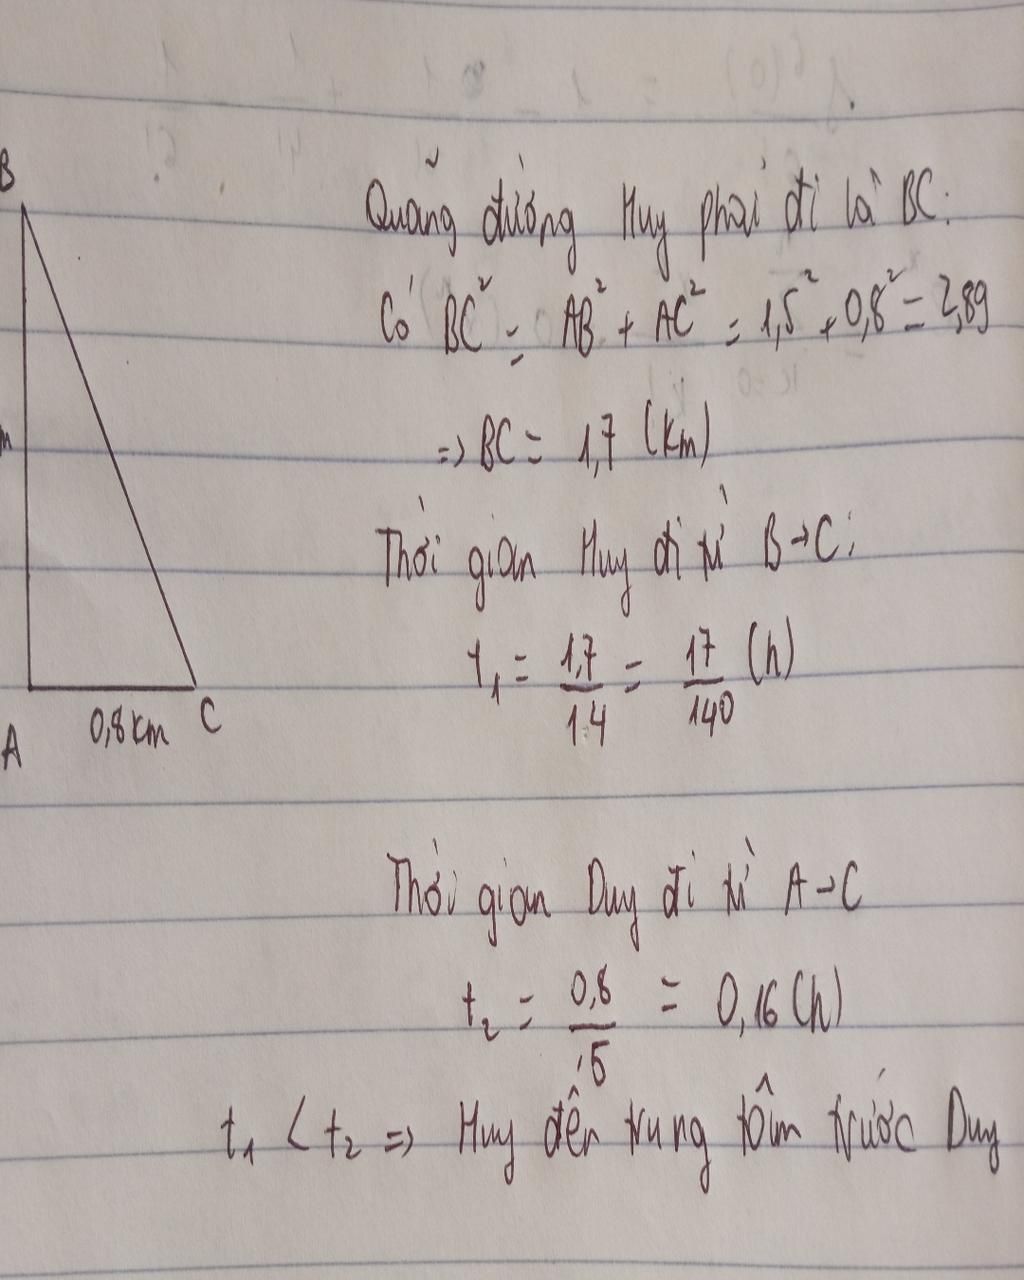 B
Quãng đường Huy phải đi là BC:
Có BC² = AB² + AC² = 1,5² + 0,8² = 2,89
m
=> BC = 1,7 (km)
Thời gian Huy đi từ B→C:
t₁ = 1,7/14 = 17/140 (h)
A 0,8km C
Thời gian Duy đi từ A→C
t₂ = 0,8/5 = 0,16 (h)
t₁ < t₂ => Huy đến trung tâm trước Duy